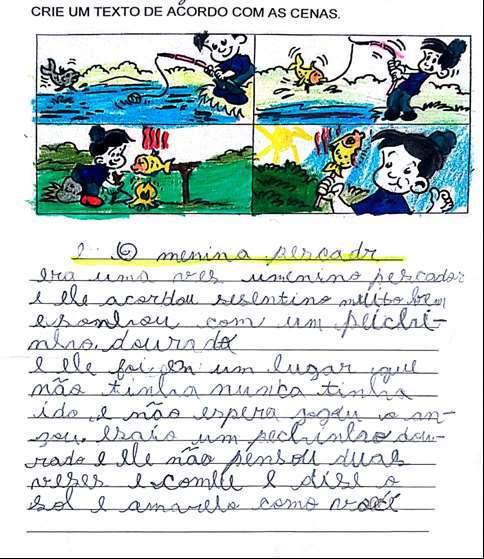 CRIE UM TEXTO DE ACORDO COM AS CENAS.
O menina pescadr
era uma ves umenino pescador
e ele acordou sesentino muito bem
e sonhou com um peichi-
nho dourado
e ele foi em um lugar que
não tinha nunca tinha
ido e não espera jogou o an-
zou. e saio um pechinho dou-
rado e ele não pensou duas
veses e comeu e dise o
sol e amarelo como você